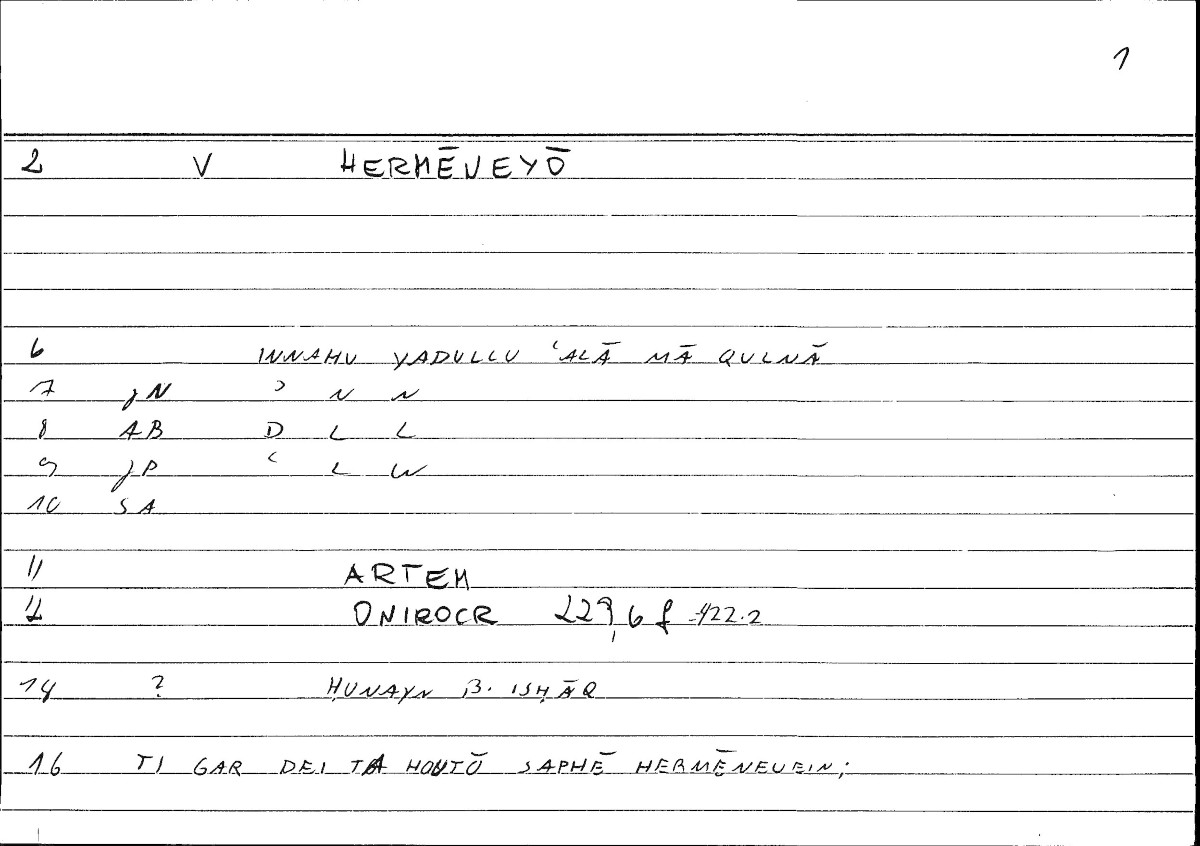 1
2 V HERMĒNEYŌ
6 INNAHU YADULLU ʿALĀ MĀ QULNĀ
7 JN ʾ N N
8 AB D L L
9 JP ʿ L W
10 SA
11 ARTEM
12 ONIROCR 229,6 f -422.2
14 ? ḤUNAYN B. ISḤĀQ
16 TI GAR DEI TA HOUTŌ SAPHĒ HERMĒNEUEIN;